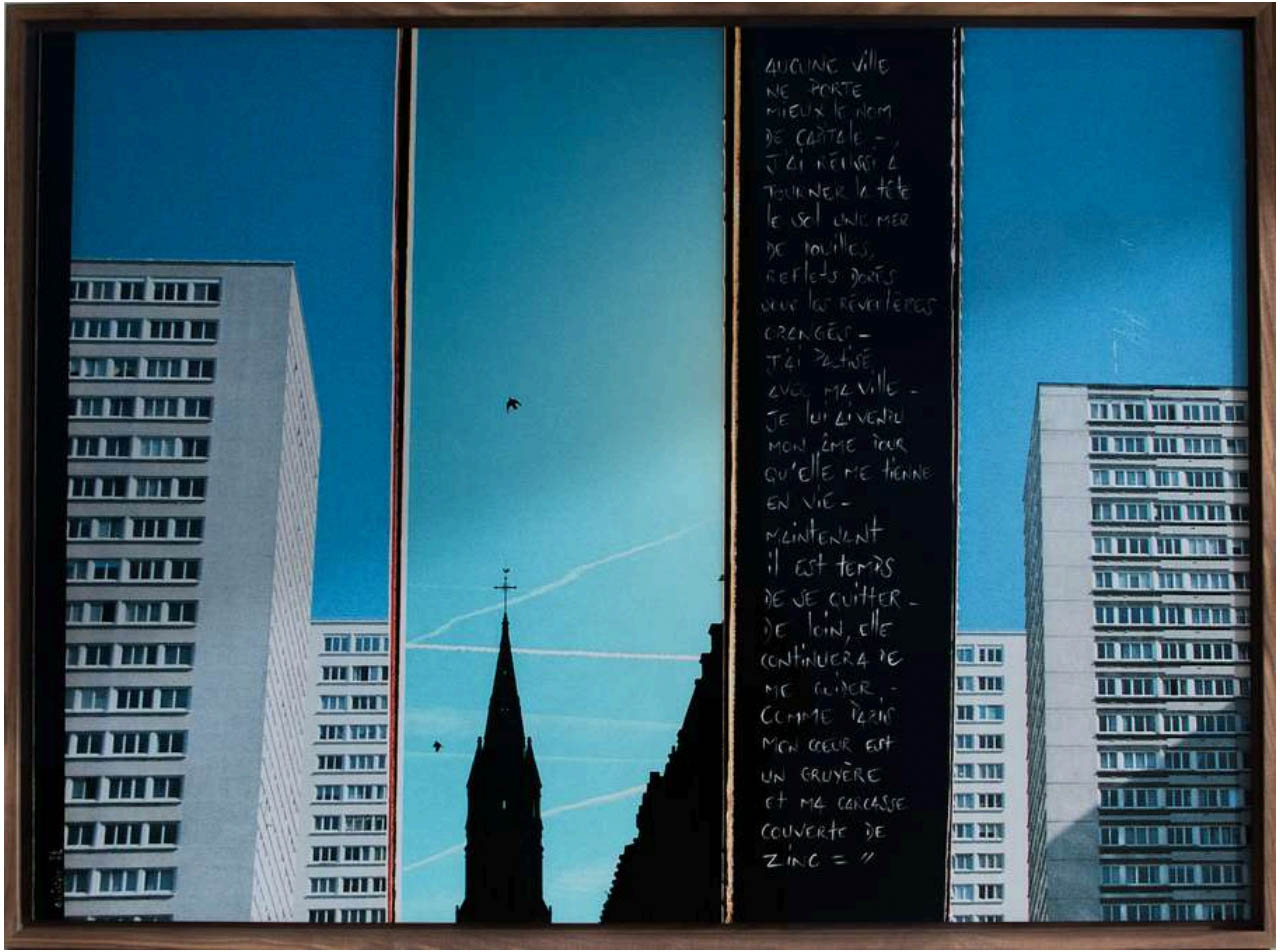 AUCUNE VILLE
NE PORTE
MIEUX LE NOM
DE CAPITALE -
J'AI RÉUSSI À
TOURNER LA TÊTE
LE SOL UNE MER
DE DOUILLES,
REFLETS DORÉS
SOUS LES RÉVERBÈRES
ORANGÉS -
J'AI PACTISÉ
AVEC MA VILLE -
JE LUI AI VENDU
MON ÂME POUR
QU'ELLE ME TIENNE
EN VIE -
MAINTENANT
IL EST TEMPS
DE SE QUITTER -
DE LOIN, ELLE
CONTINUERA DE
ME GUIDER -
COMME PARIS
MON COEUR EST
UN GRUYÈRE
ET MA CARCASSE
COUVERTE DE
ZINC = "